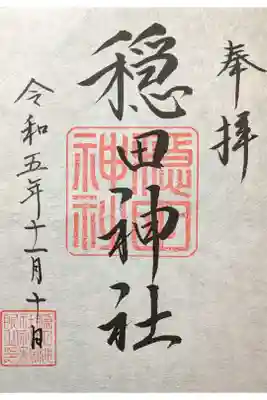 奉拝
穏田神社
令和五年十一月十日
穏田
神社